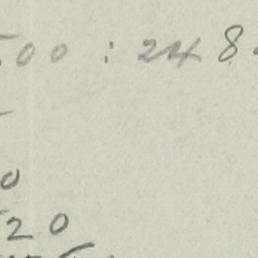 500 : 248
0
20